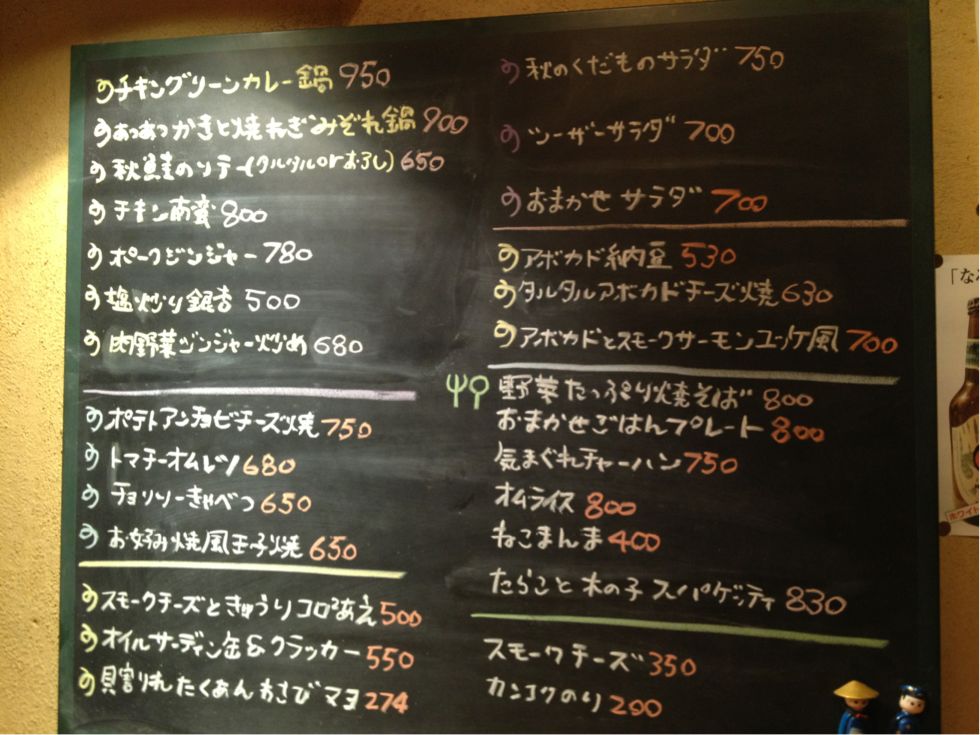 チキングリーンカレー鍋 950
あつあつかきと焼ねぎみぞれ鍋 900
秋鮭のソテー(タルタルorおろし) 650
チキン南蛮 800
ポークジンジャー 780
塩炒り銀杏 500
肉野菜ジンジャー炒め 680
ポテトアンチョビチーズ焼 750
トマチーオムレツ 680
チョリソーきゃべつ 650
お好み焼風玉子焼 650
スモークチーズときゅうりコロコロあえ 500
オイルサーディン缶&クラッカー 550
貝割りれたくあんわさびマヨ 274
秋のくだものサラダ 750
シーザーサラダ 700
おまかせサラダ 700
アボカド納豆 530
タルタルアボカドチーズ焼 630
アボカドとスモークサーモンユッケ風 700
野菜たっぷり焼そば 800
おまかせごはんプレート 800
気まぐれチャーハン 750
オムライス 800
ねこまんま 400
たらこと木の子スパゲッティ 830
スモークチーズ 350
カンコクのり 200
「な
ホワイト